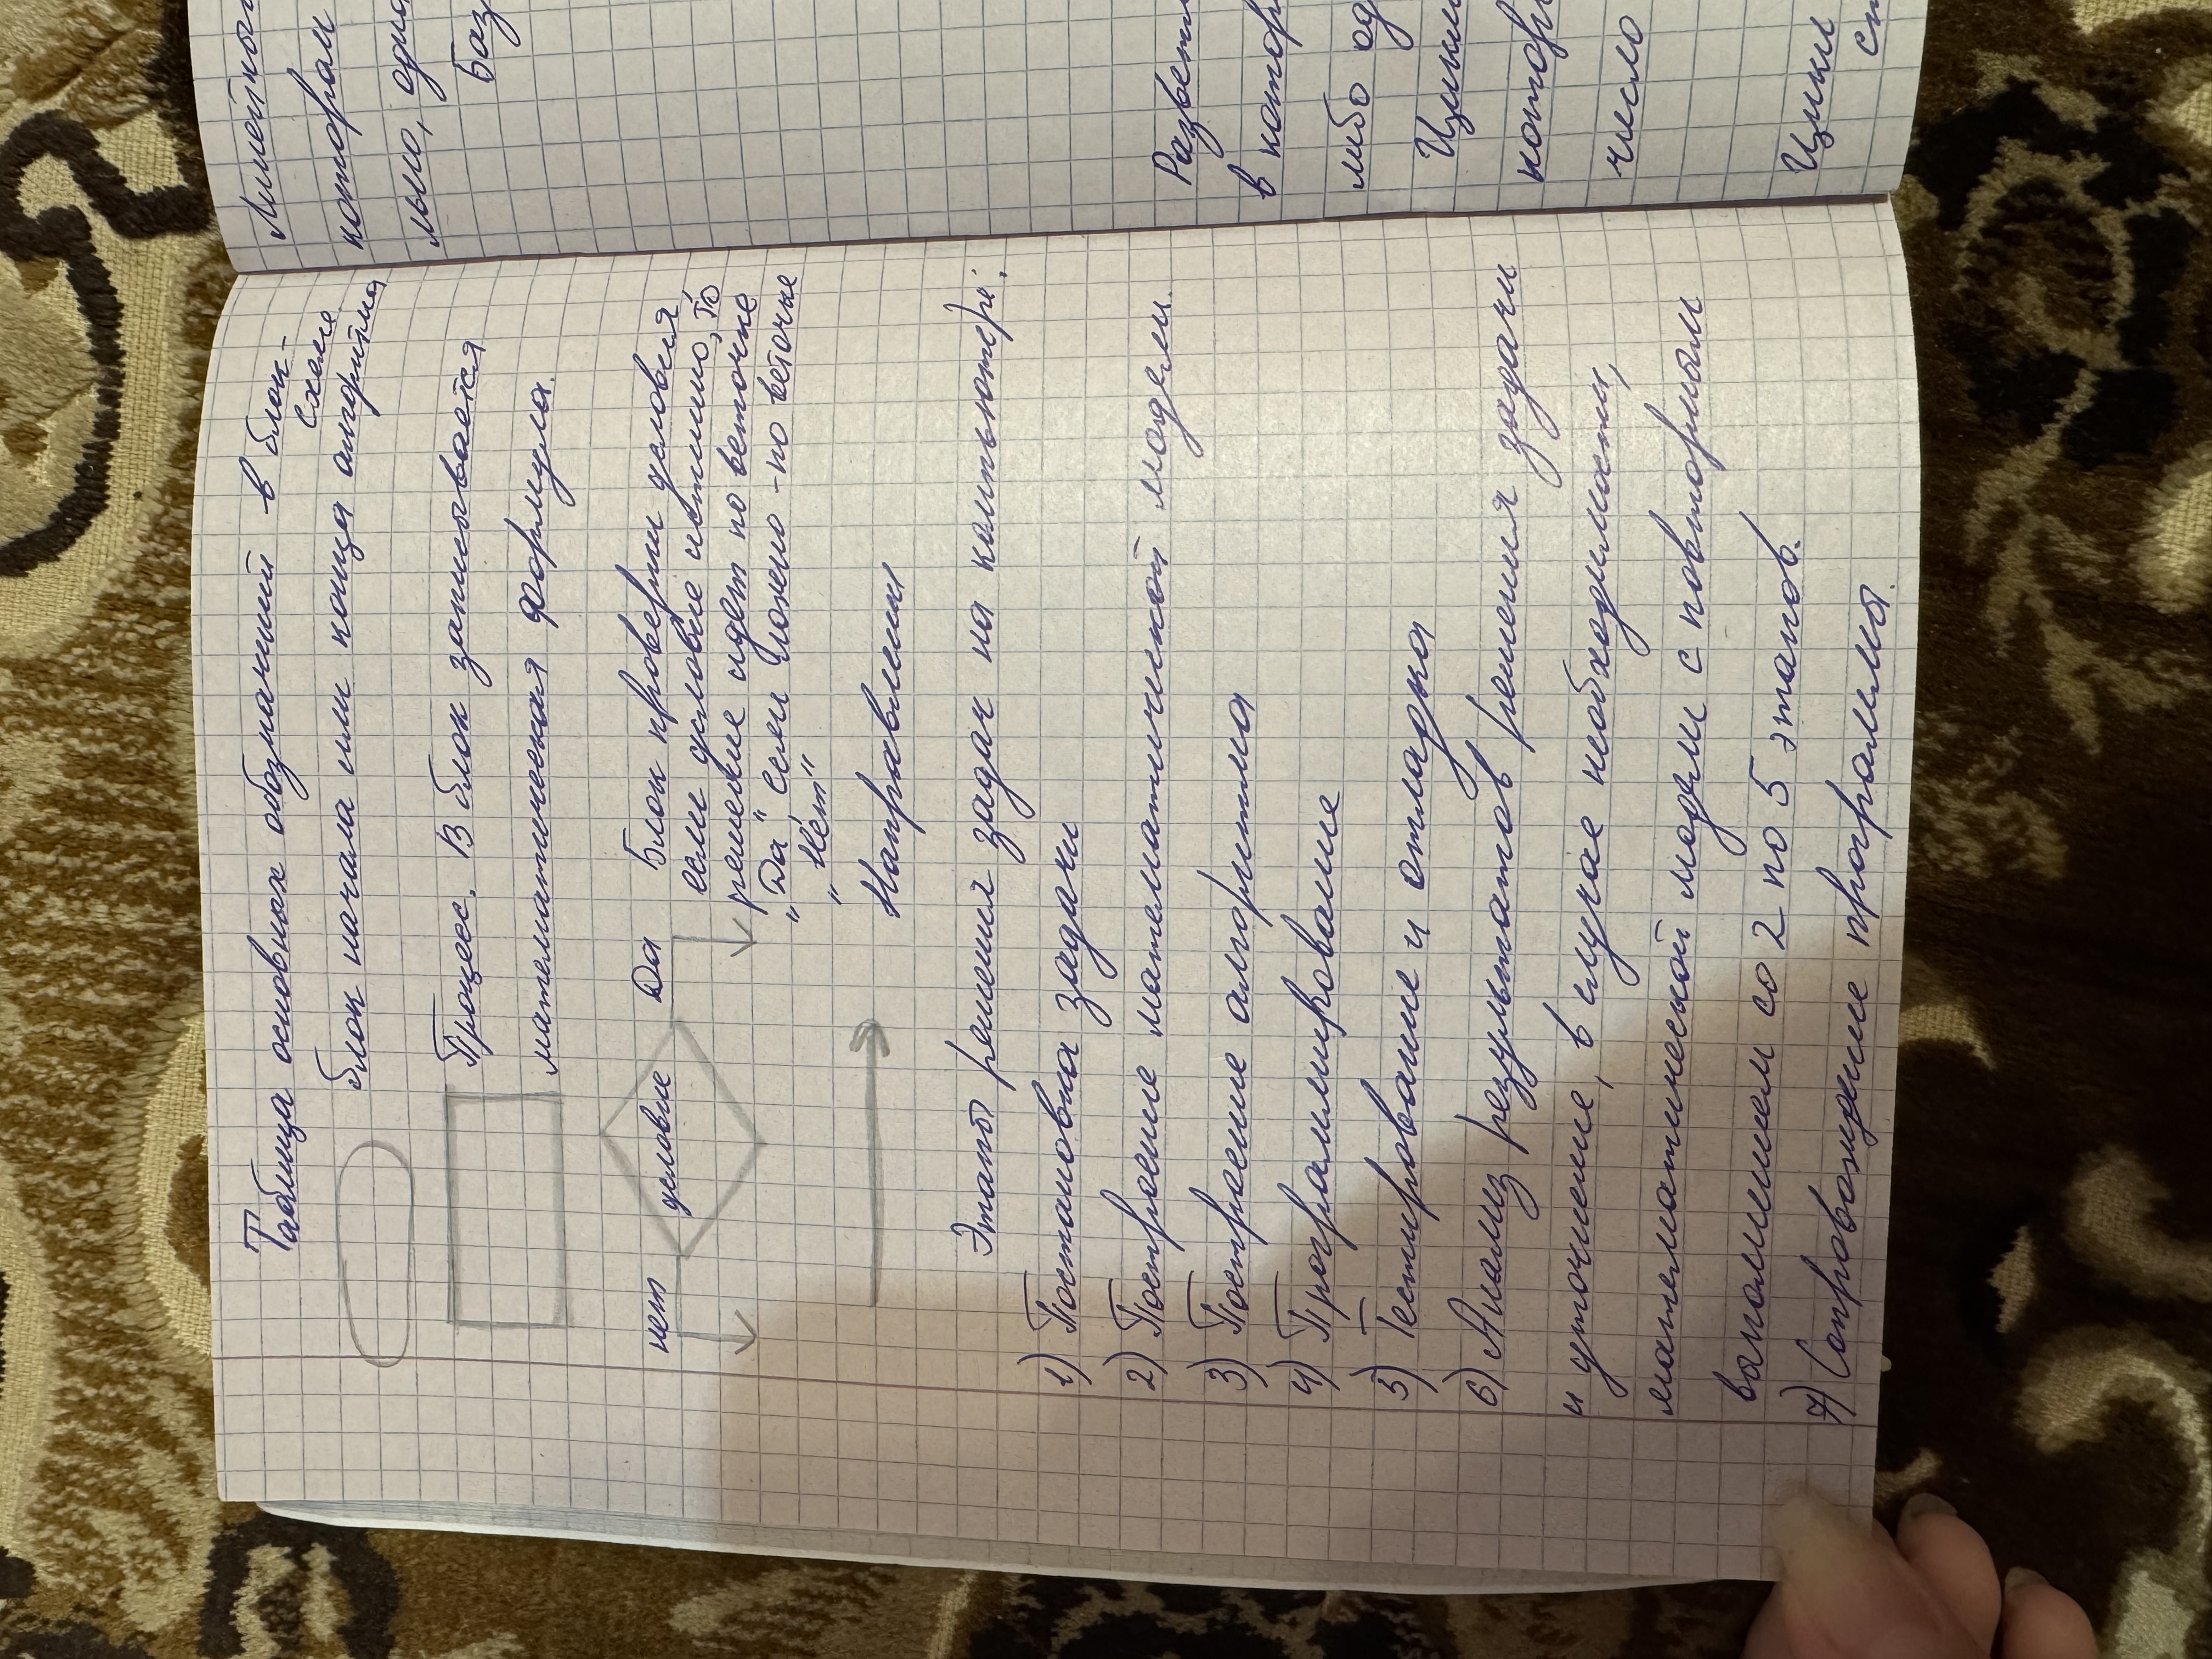 Таблица основных обозначений в блок-
схеме
блок начала или конца алгоритма
Процесс. В блок записывается
математическая формула.
нет условие Да
Блок проверки условия
если условие истинно, то
решение идет по веточке
„Да" если ложно - по веточке
„Нет"
Направлении
Этапы решения задач на компьютере:
1) Постановка задачи
2) Построение математической модели.
3) Построение алгоритма
4) Программирование
5) Тестирование и отладка
6) Анализ результатов решения задачи
и уточнение, в случае необходимости,
математической модели с повторным
выполнением со 2 по 5 этапов.
7) Сопровождение программы.
Линейной
котором
льно, одно
Баз
Развет
в котор
либо од
Цикли
котор
число
Цикл
сп